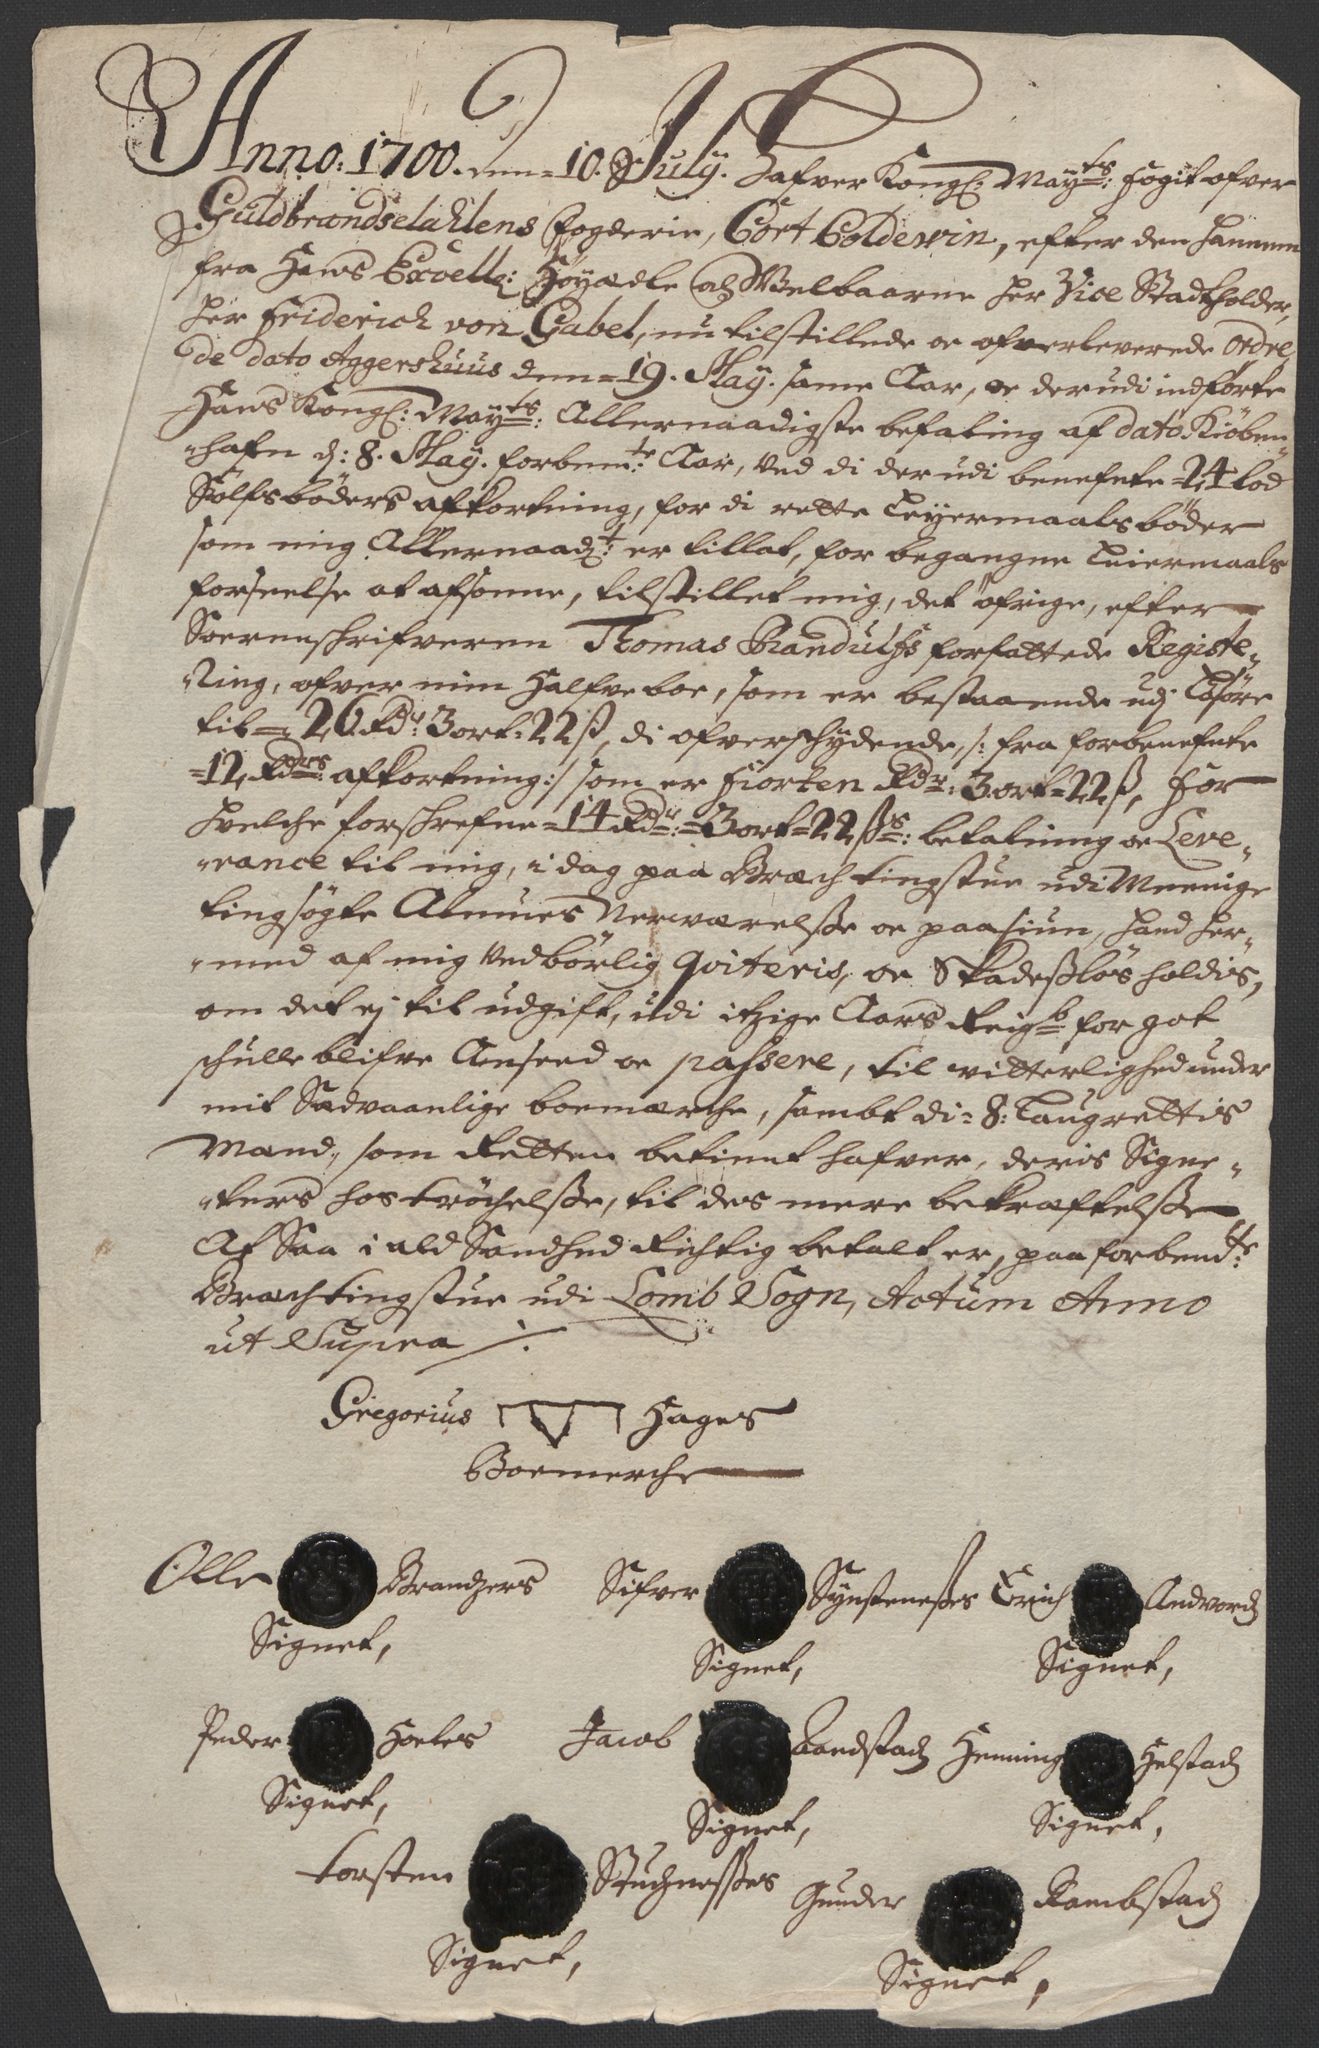 Anno: 1700. den = 10. July. Hafver Kongl: Mayts: Fogit ofver
Guldbrandsdahlens fogderie, Cort Coldewin, efter den hannem
fra Hans Excell: Höyædle og Welbaarne Her Vice Stadtholder,
Her Friderich von Gabel, nu tilstillede oc ofverleverede Ordre,
de dato Aggershuus den = 19. May. same Aar, oc derudi indförte
Hans Kongl: Mayts: Allernaadigste befaling af dato Kiöben-
-hafn d: 8. May. forbemte: Aar, Ved di derudi benefnte = 24 lod
Sölfs böders afkortning, for di rette Leyermaals böder
som mig Allernaadgt: er tillat, for begangne Leiermaals
forseelse at afsonne, tilstillet mig, det öfrige, efter
Sorenschrifveren Thomas Randulfs forfattede Registe-
-Ring, ofver min Halfve boe, som er bestaaende udj Lösöre
til = 26 Rdr: 3 ort = 22 ß, di ofverschydende, /: fra forbenefnte
=12 Rdrs: afkortning :/ som er Fiorten Rdr: 3 ort = 22 ß, For
hvelche forschrefne = 14 Rdr: = 3 ort = 22 ßs: betalning oc Leve-
-rance til mig, i dag paa Brech tingstue udi Menige
tingsögte Almues Nerværelsse oc paasiun, hand her-
-med af mig Vedbörlig qviteris, oc Skadeslös holdis,
om det ej til udgift, udi itzige Aars Reigb: for got
schulle blifve Anseed oc passere, til vitterlighed under
mit Sædvaanlige boemærche, sambt di = 8: Laugrettis
Mænd, som Retten betient hafver, deris Signe-
-ters hoströchelsse, til des mere bekræftelsse
At Saa i ald Sandhed Richtig betalt er, paa forbendte:
Brech tingstue udi Lomb Sogn, Actum Anno
ut Supra /.
Gregorius Hages
Boemerche
Olle Brandzers Sifver Synstenesses Erich Andvord
Signet, Signet, Signet,
Peder Hoeles Jacob Aandstad Henning Helstad
Signet, Signet, Signet,
Torsten Stuchnesses Gunder Rambstad
Signet, Signet,